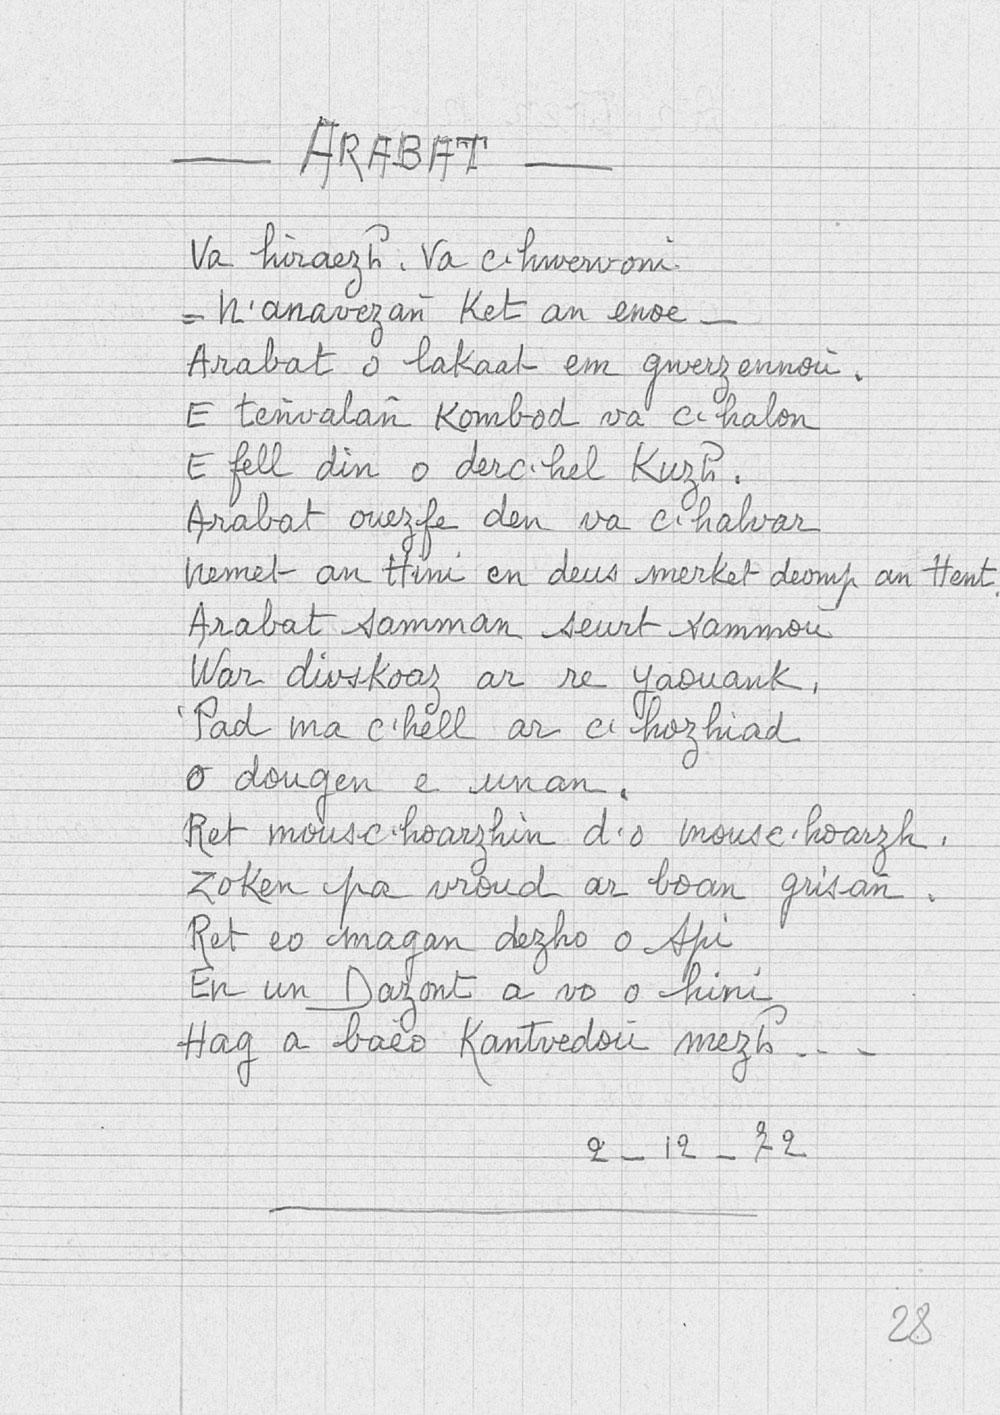 — ARABAT —
Va hiraezh. Va c'hwervoni.
– N'anavezañ Ket an enoe –
Arabat o lakaat em gwerzennoù.
E teñvalañ Kombod va c'halon
E fell din o derc'hel Kuzh.
Arabat ouezfe den va c'halvar
Nemet an Hini en deus merket deomp an Hent.
Arabat samman seurt sammoù
War divskoaz ar re yaouank,
'Pad ma c'hell ar c'hozhiad
O dougen e unan.
Ret mousc'hoarzhin d'o mousc'hoarzh.
Zoken pa vroud ar boan grisañ.
Ret eo magan dezho o Spi
En un Dazont a vo o hini
Hag a baeo Kantvedoù mezh...
2 – 12 – 72
28